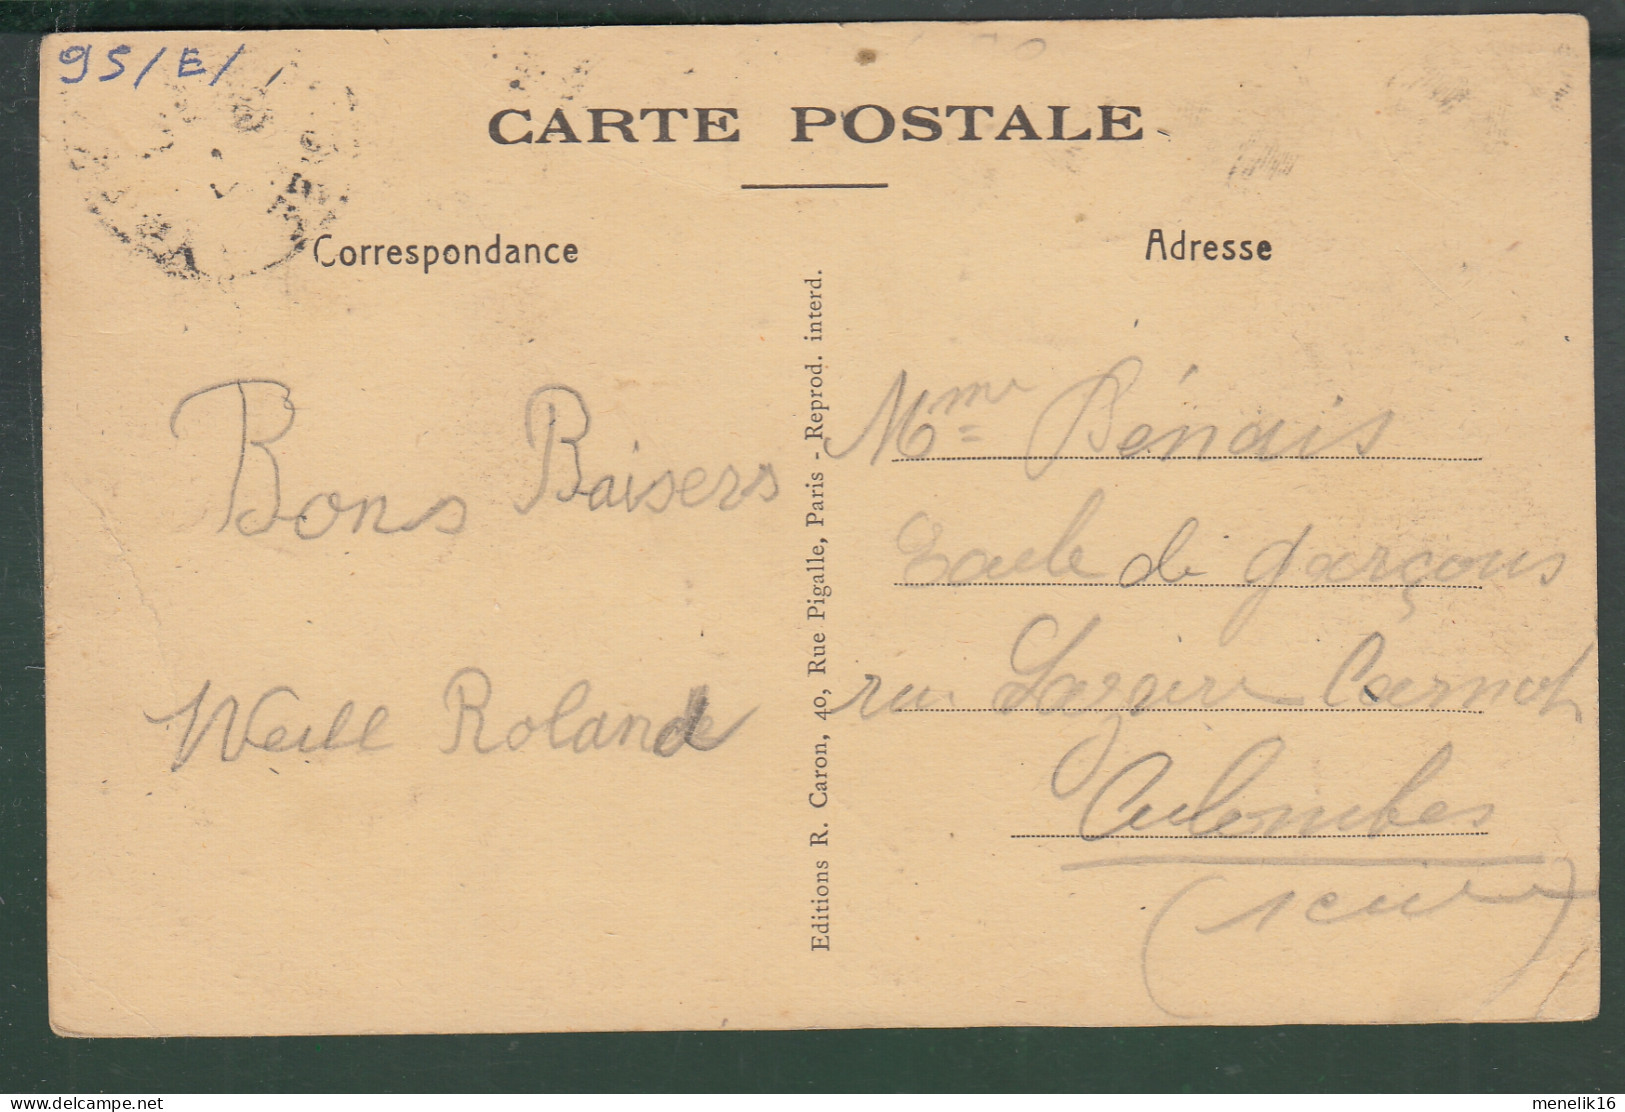 95/E/
CARTE POSTALE
Correspondance
Adresse
Bons Baisers
Weill Roland
Editions R. Caron, 40, Rue Pigalle, Paris - Reprod. interd.
Mme Bénais
Ecole de garçons
rue Lazare Carnot
Colombes
(Seine)
delcampe.net
menelik16